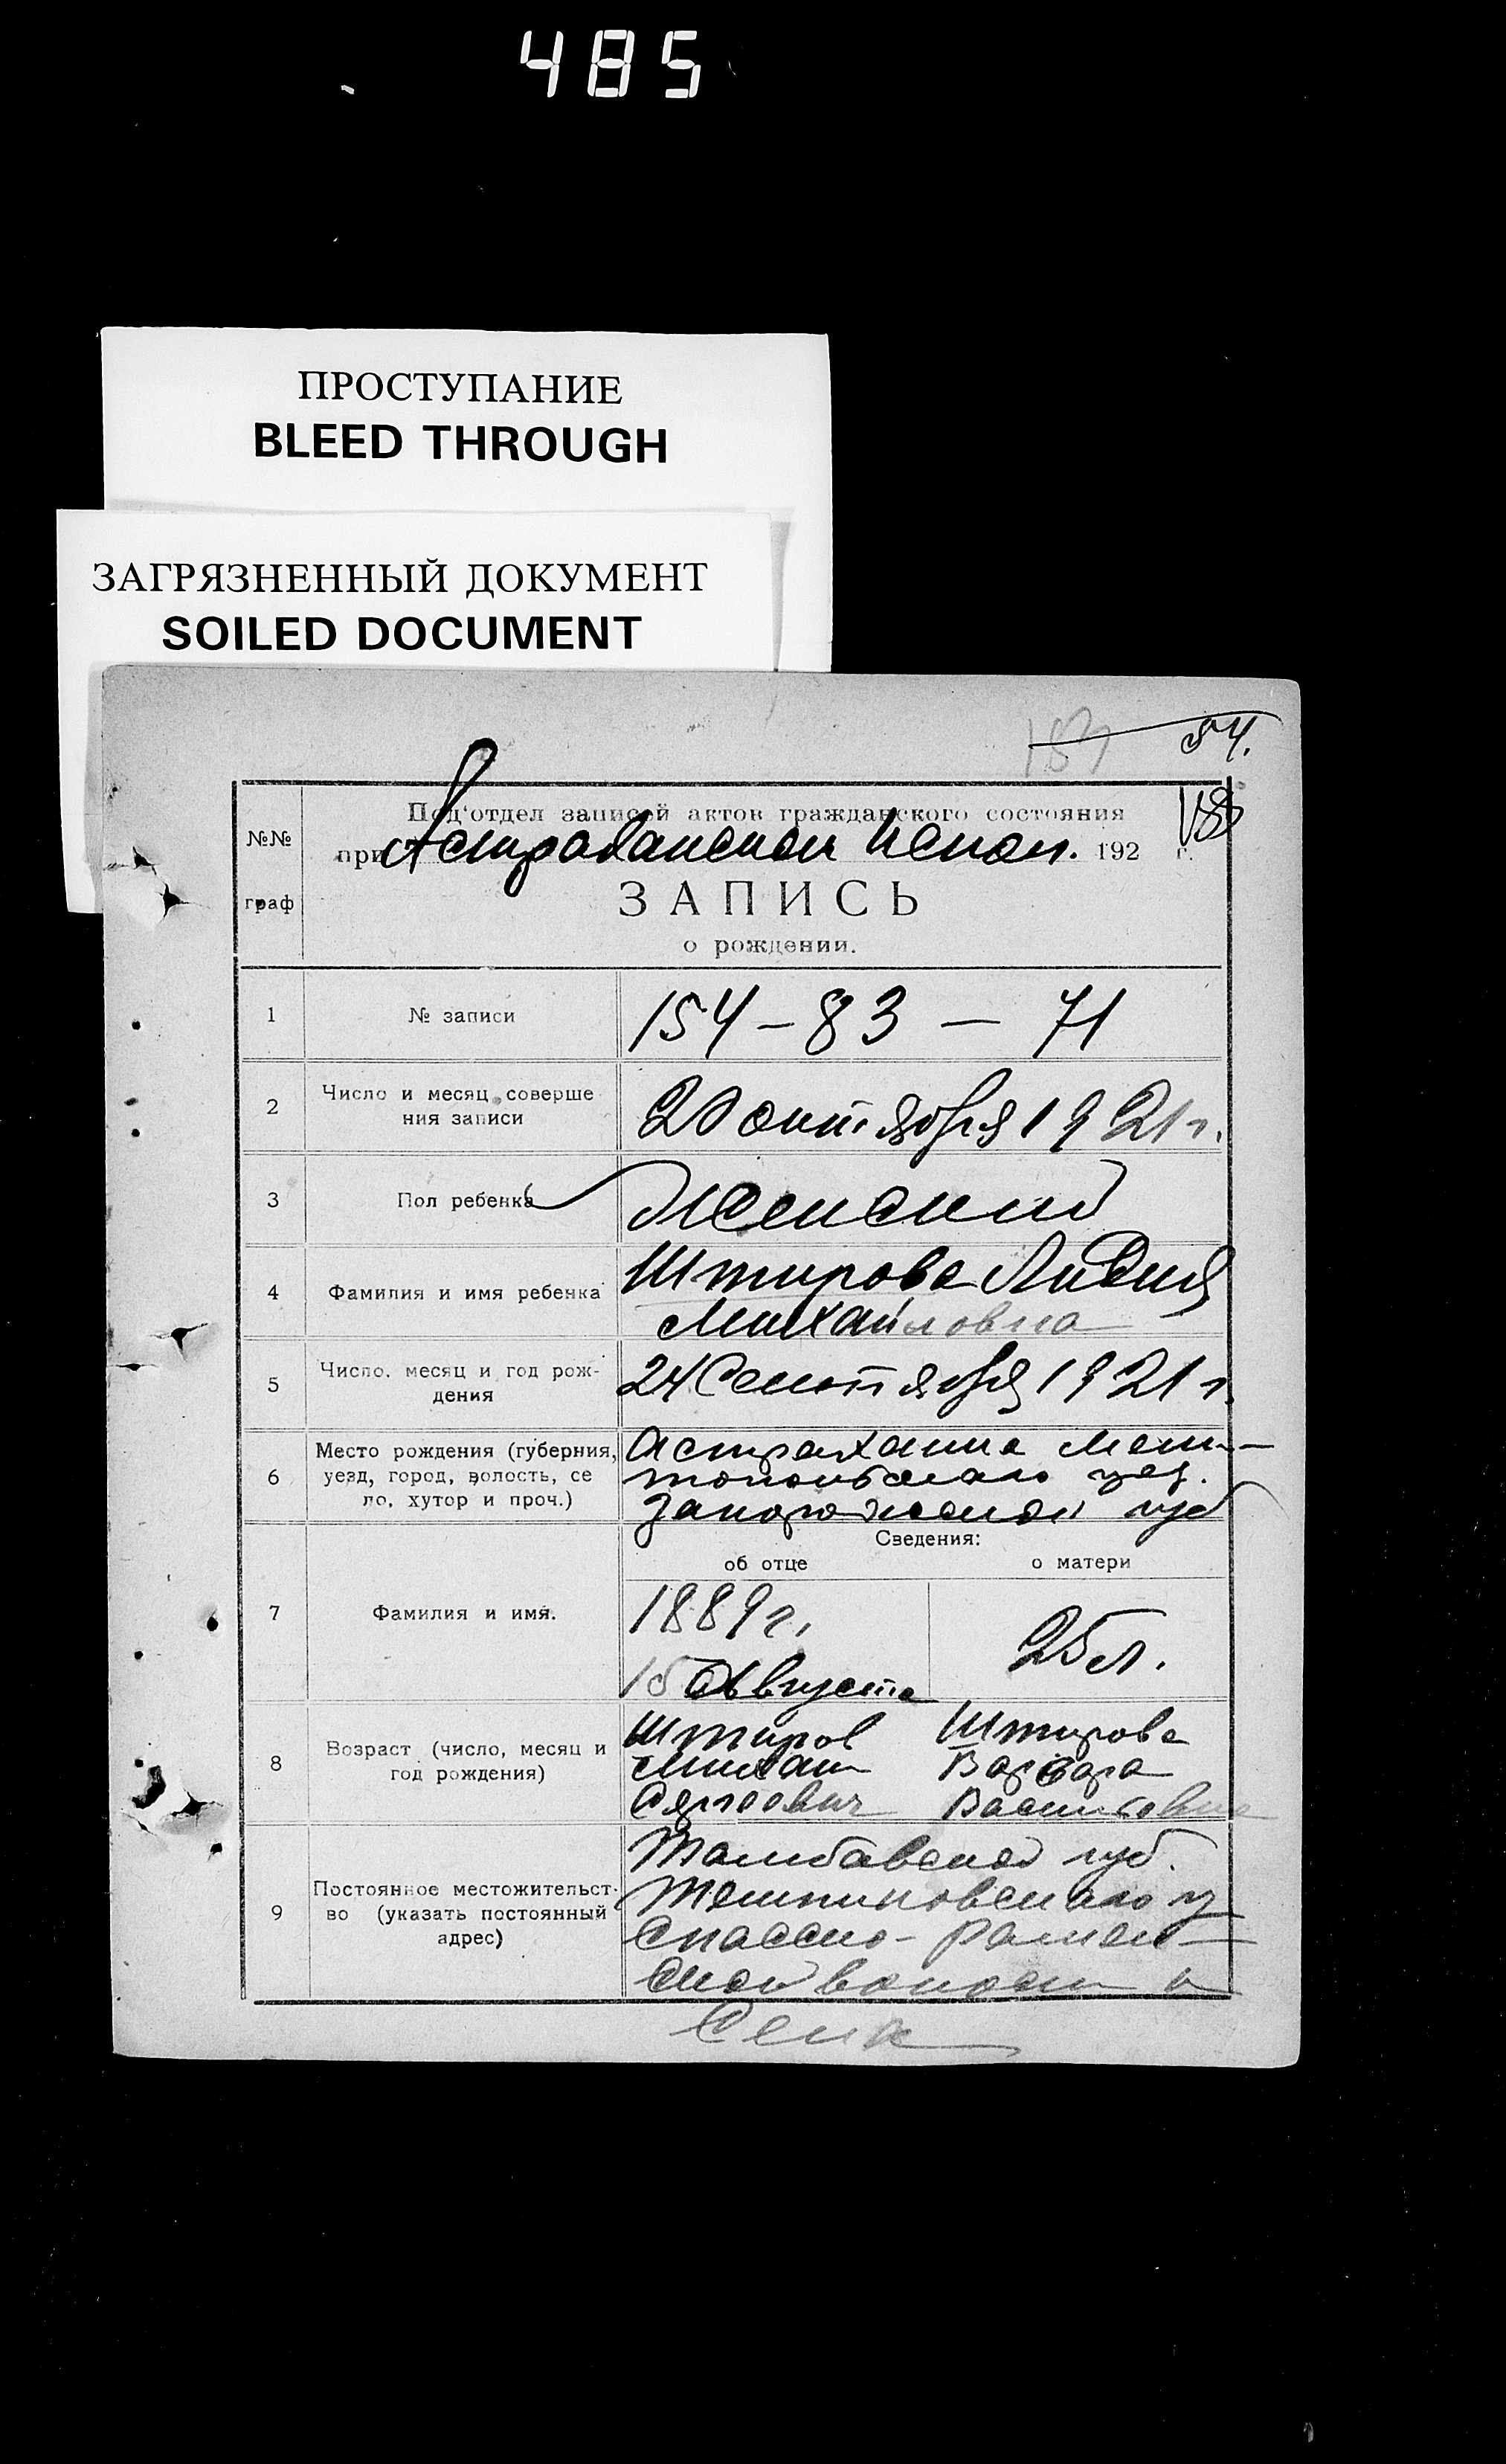 485
ПРОСТУПАНИЕ
BLEED THROUGH
ЗАГРЯЗНЕННЫЙ ДОКУМЕНТ
SOILED DOCUMENT
54.
№№
граф
Под'отдел записей актов гражданского состояния
при Астраханском Испол. 192 г.
ЗАПИСЬ
о рождении.
1
№ записи
154 - 83 - 71
2
Число и месяц соверше
ния записи
20 октября 1921 г.
3
Пол ребенка
Женский
4
Фамилия и имя ребенка
Штирова Лидия
Михайловна
5
Число, месяц и год рож-
дения
24 Сентября 1921 г.
6
Место рождения (губерния,
уезд, город, волость, се
ло, хутор и проч.)
Астраханка Мели-
топольского уез.
Запорожской губ
Сведения:
об отце
о матери
7
Фамилия и имя.
1889 г.
15 Августа
25 л.
8
Возраст (число, месяц и
год рождения)
Штиров
Михаил
Сергеевич
Штирова
Варвара
Васильевна
9
Постоянное местожительст-
во (указать постоянный
адрес)
Тамбовской губ.
Темниковского у
Спасско-
ской волости